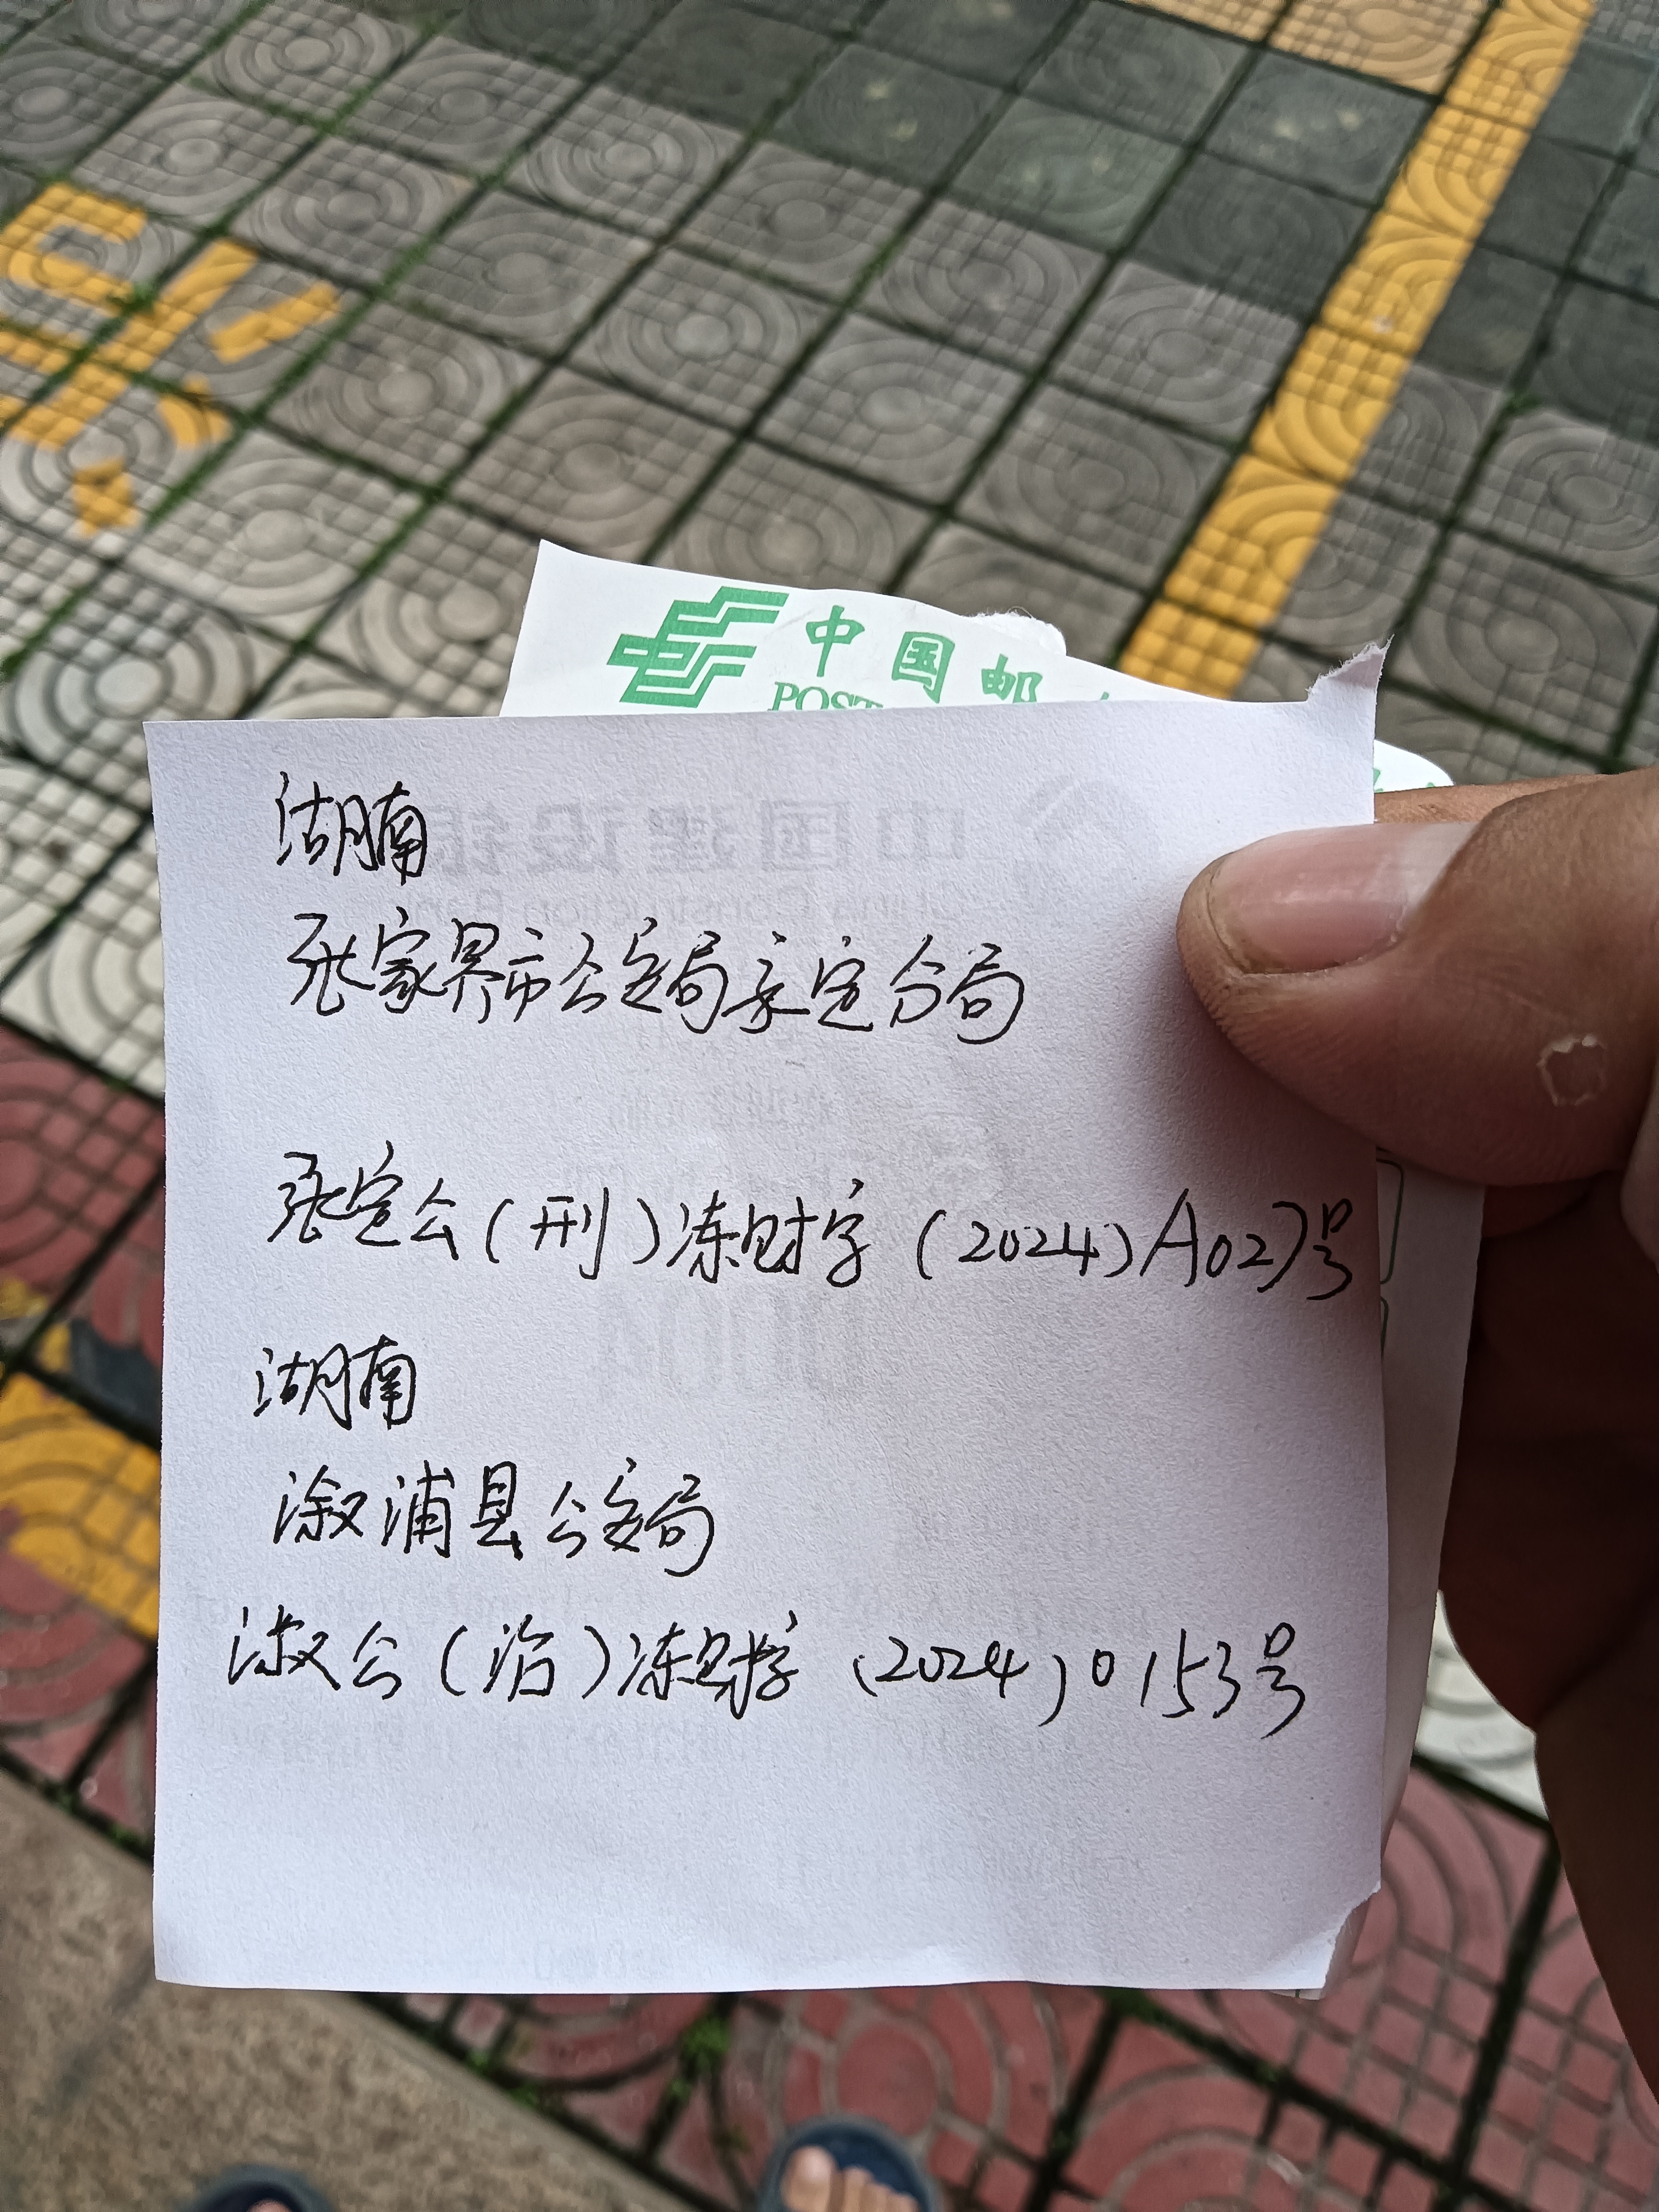 中国邮
POST
湖南
张家界市公安局永定分局
张定公(刑)冻财字(2024)A027号
湖南
溆浦县公安局
溆公(治)冻财字(2024)0153号